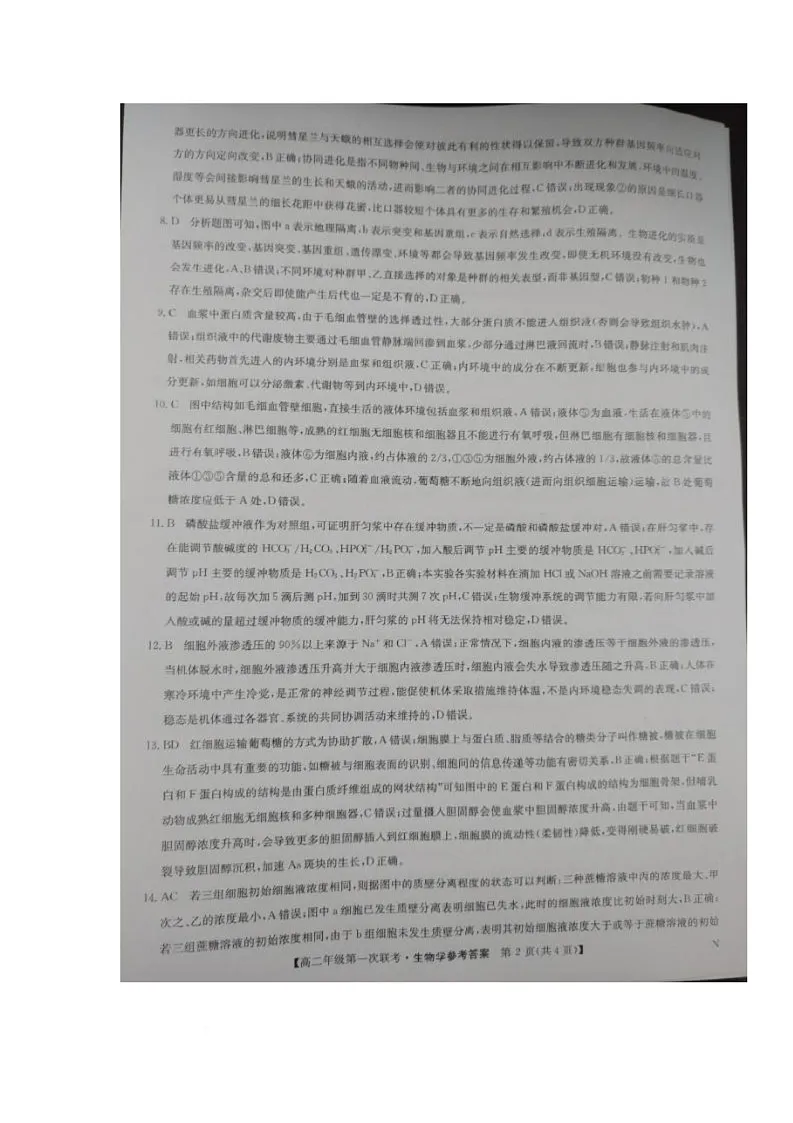 器更长的方向进化,说明彗星兰与天蛾的相互选择会使对彼此有利的性状得以保留,导致双方种群基因频率向适应对
方的方向定向改变,B正确;协同进化是指不同物种间、生物与环境之间在相互影响中不断进化和发展,环境中的温度、
湿度等会间接影响彗星兰的生长和天蛾的活动,进而影响二者的协同进化过程,C错误;出现现象②的原因是细长口器
个体更易从彗星兰的细长花距中获得花蜜,比口器较短个体具有更多的生存和繁殖机会,D正确。
8. D 分析题图可知,图中a表示地理隔离,b表示突变和基因重组,c表示自然选择,d表示生殖隔离。生物进化的实质是
基因频率的改变,基因突变、基因重组、遗传漂变、环境等都会导致基因频率发生改变,即使无机环境没有改变,生物也
会发生进化,A、B错误;不同环境对种群甲、乙直接选择的对象是种群的相关表型,而非基因型,C错误;物种1和物种2
存在生殖隔离,杂交后即使能产生后代也一定是不育的,D正确。
9. C 血浆中蛋白质含量较高,由于毛细血管壁的选择透过性,大部分蛋白质不能进入组织液(否则会导致组织水肿),A
错误;组织液中的代谢废物主要通过毛细血管静脉端回渗到血浆,少部分通过淋巴液回流时,B错误;静脉注射和肌肉注
射,相关药物首先进入的内环境分别是血浆和组织液,C正确;内环境中的成分在不断更新,细胞也参与内环境中的成
分更新,如细胞可以分泌激素、代谢物等到内环境中,D错误。
10. C 图中结构如毛细血管壁细胞,直接生活的液体环境包括血浆和组织液,A错误;液体⑤为血液,生活在液体⑤中的
细胞有红细胞、淋巴细胞等,成熟的红细胞无细胞核和细胞器且不能进行有氧呼吸,但淋巴细胞有细胞核和细胞器,且
进行有氧呼吸,B错误;液体⑥为细胞内液,约占体液的2/3,①③⑤为细胞外液,约占体液的1/3,故液体⑥的总含量比
液体①③⑤含量的总和还多,C正确;随着血液流动,葡萄糖不断地向组织液(进而向组织细胞运输)运输,故B处葡萄
糖浓度应低于A处,D错误。
11. B 磷酸盐缓冲液作为对照组,可证明肝匀浆中存在缓冲物质,不一定是磷酸和磷酸盐缓冲对,A错误;在肝匀浆中,存
在能调节酸碱度的HCO₃⁻/H₂CO₃、HPO₄²⁻/H₂PO₄⁻,加入酸后调节pH主要的缓冲物质是HCO₃⁻、HPO₄²⁻,加入碱后
调节pH主要的缓冲物质是H₂CO₃、H₂PO₄⁻,B正确;本实验各实验材料在滴加HCl或NaOH溶液之前需要记录溶液
的起始pH,故每次加5滴后测pH,加到30滴时共测7次pH,C错误;生物缓冲系统的调节能力有限,若向肝匀浆中加
入酸或碱的量超过缓冲物质的缓冲能力,肝匀浆的pH将无法保持相对稳定,D错误。
12. B 细胞外液渗透压的90%以上来源于Na⁺和Cl⁻,A错误;正常情况下,细胞内液的渗透压等于细胞外液的渗透压,
当机体脱水时,细胞外液渗透压升高并大于细胞内液渗透压时,细胞内液会失水导致渗透压随之升高,B正确;人体在
寒冷环境中产生冷觉,是正常的神经调节过程,能促使机体采取措施维持体温,不是内环境稳态失调的表现,C错误;
稳态是机体通过各器官、系统的共同协调活动来维持的,D错误。
13. BD 红细胞运输葡萄糖的方式为协助扩散,A错误;细胞膜上与蛋白质、脂质等结合的糖类分子叫作糖被,糖被在细胞
生命活动中具有重要的功能,如糖被与细胞表面的识别、细胞间的信息传递等功能有密切关系,B正确;根据题干“E蛋
白和F蛋白构成的结构是由蛋白质纤维组成的网状结构”可知图中的E蛋白和F蛋白构成的结构为细胞骨架,但哺乳
动物成熟红细胞无细胞核和多种细胞器,C错误;过量摄入胆固醇会使血浆中胆固醇浓度升高,由题干可知,当血浆中
胆固醇浓度升高时,会导致更多的胆固醇插入到红细胞膜上,细胞膜的流动性(柔韧性)降低,变得刚硬易破,红细胞破
裂导致胆固醇沉积,加速As斑块的生长,D正确。
14. AC 若三组细胞初始细胞液浓度相同,则据图中的质壁分离程度的状态可以判断:三种蔗糖溶液中丙的浓度最大、甲
次之、乙的浓度最小,A错误;图中a细胞已发生质壁分离表明细胞已失水,此时的细胞液浓度比初始时刻大,B正确;
若三组蔗糖溶液的初始浓度相同,由于b组细胞未发生质壁分离,表明其初始细胞液浓度大于或等于蔗糖溶液的初始
【高二年级第一次联考·生物学参考答案 第2页(共4页)】
N